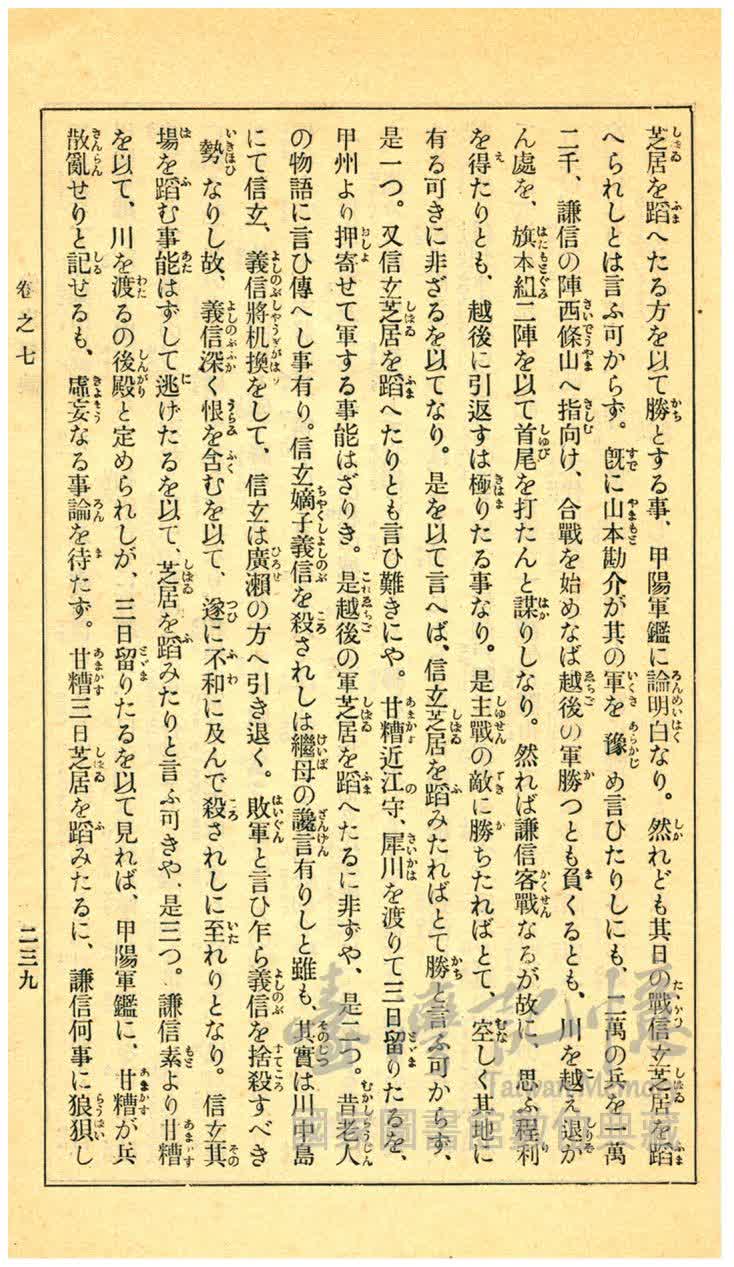 芝居を蹈へたる方を以て勝とする事、甲陽軍鑑に論明白なり。然れども其日の戰信玄芝居を蹈
へられしとは言ふ可からず。旣に山本勘介が其の軍を豫め言ひたりしにも、二萬の兵を一萬
二千、謙信の陣西條山へ指向け、合戰を始めなば越後の軍勝つとも負くるとも、川を越え退か
ん處を、旗本組二陣を以て首尾を打たんと謀りしなり。然れば謙信客戰なるが故に、思ふ程利
を得たりとも、越後に引返すは極りたる事なり。是主戰の敵に勝ちたればとて、空しく其地に
有る可きに非ざるを以てなり。是を以て言へば、信玄芝居を蹈みたればとて勝と言ふ可からず、
是一つ。又信玄芝居を蹈へたりとも言ひ難きにや。甘糟近江守、犀川を渡りて三日留りたるを、
甲州より押寄せて軍する事能はざりき。是越後の軍芝居を蹈へたるに非ずや、是二つ。昔老人
の物語に言ひ傳へし事有り。信玄嫡子義信を殺されしは繼母の讒言有りしと雖も、其實は川中島
にて信玄、義信將机換をして、信玄は廣瀬の方へ引き退く。敗軍と言ひ乍ら義信を捨殺すべき
勢なりし故、義信深く恨を含むを以て、遂に不和に及んで殺されしに至れりとなり。信玄其
場を蹈む事能はずして逃げたるを以て、芝居を蹈みたりと言ふ可きや、是三つ。謙信素より甘糟
を以て、川を渡るの後殿と定められしが、三日留りたるを以て見れば、甲陽軍鑑に、甘糟が兵
散亂せりと記せるも、虛妄なる事論を待たず。甘糟三日芝居を蹈みたるに、謙信何事に狼狽し
卷之七
二三九
臺灣記憶
Taiwan Memory
國家圖書館數位典藏